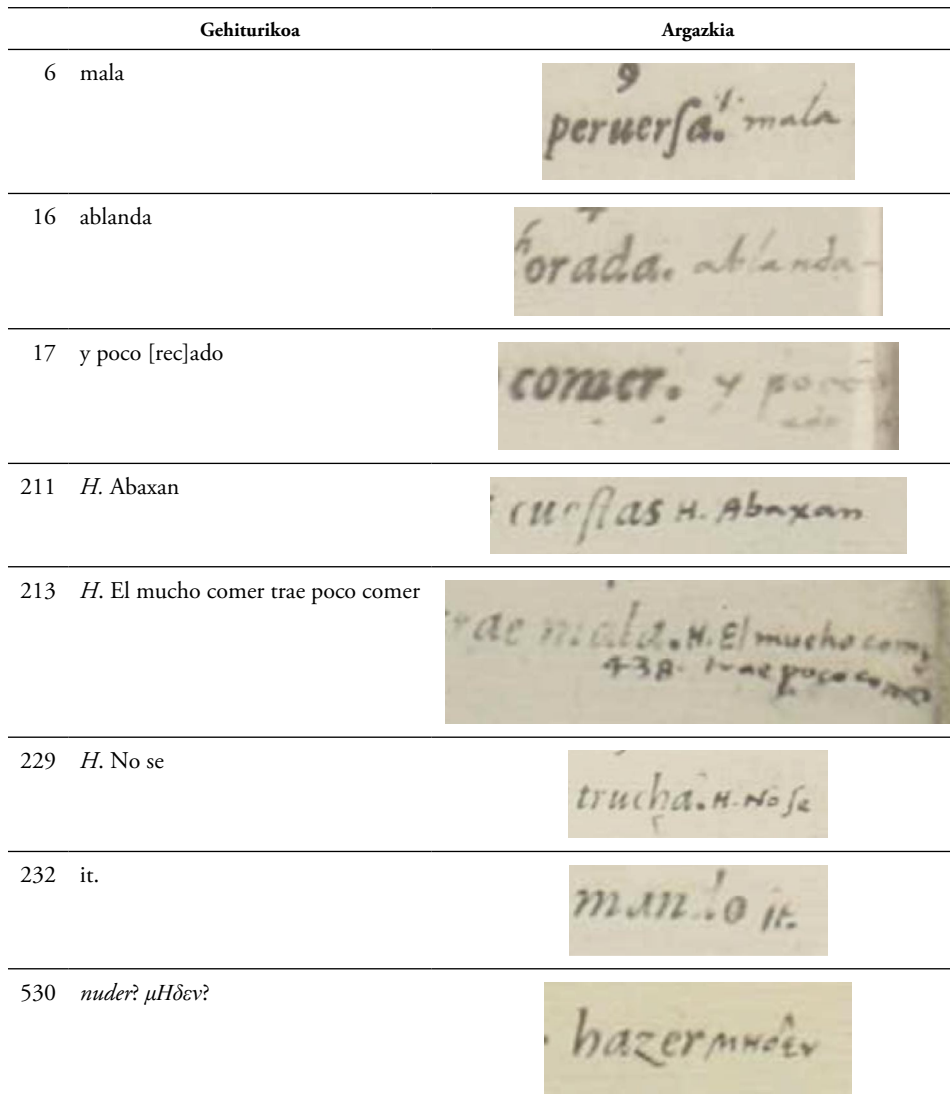 Gehiturikoa Argazkia
6 mala
9
peruerſa. mala
16 ablanda
horada. ablanda
17 y poco [rec]ado
comer. y poco
ado
211 H. Abaxan
cueſtas H. Abaxan
213 H. El mucho comer trae poco comer
rae mala. H. El mucho comer
438. trae poco comer
229 H. No se
trucha. H. No ſe
232 it.
it.
530 nuder? μHδεν?
hazer μHδεν